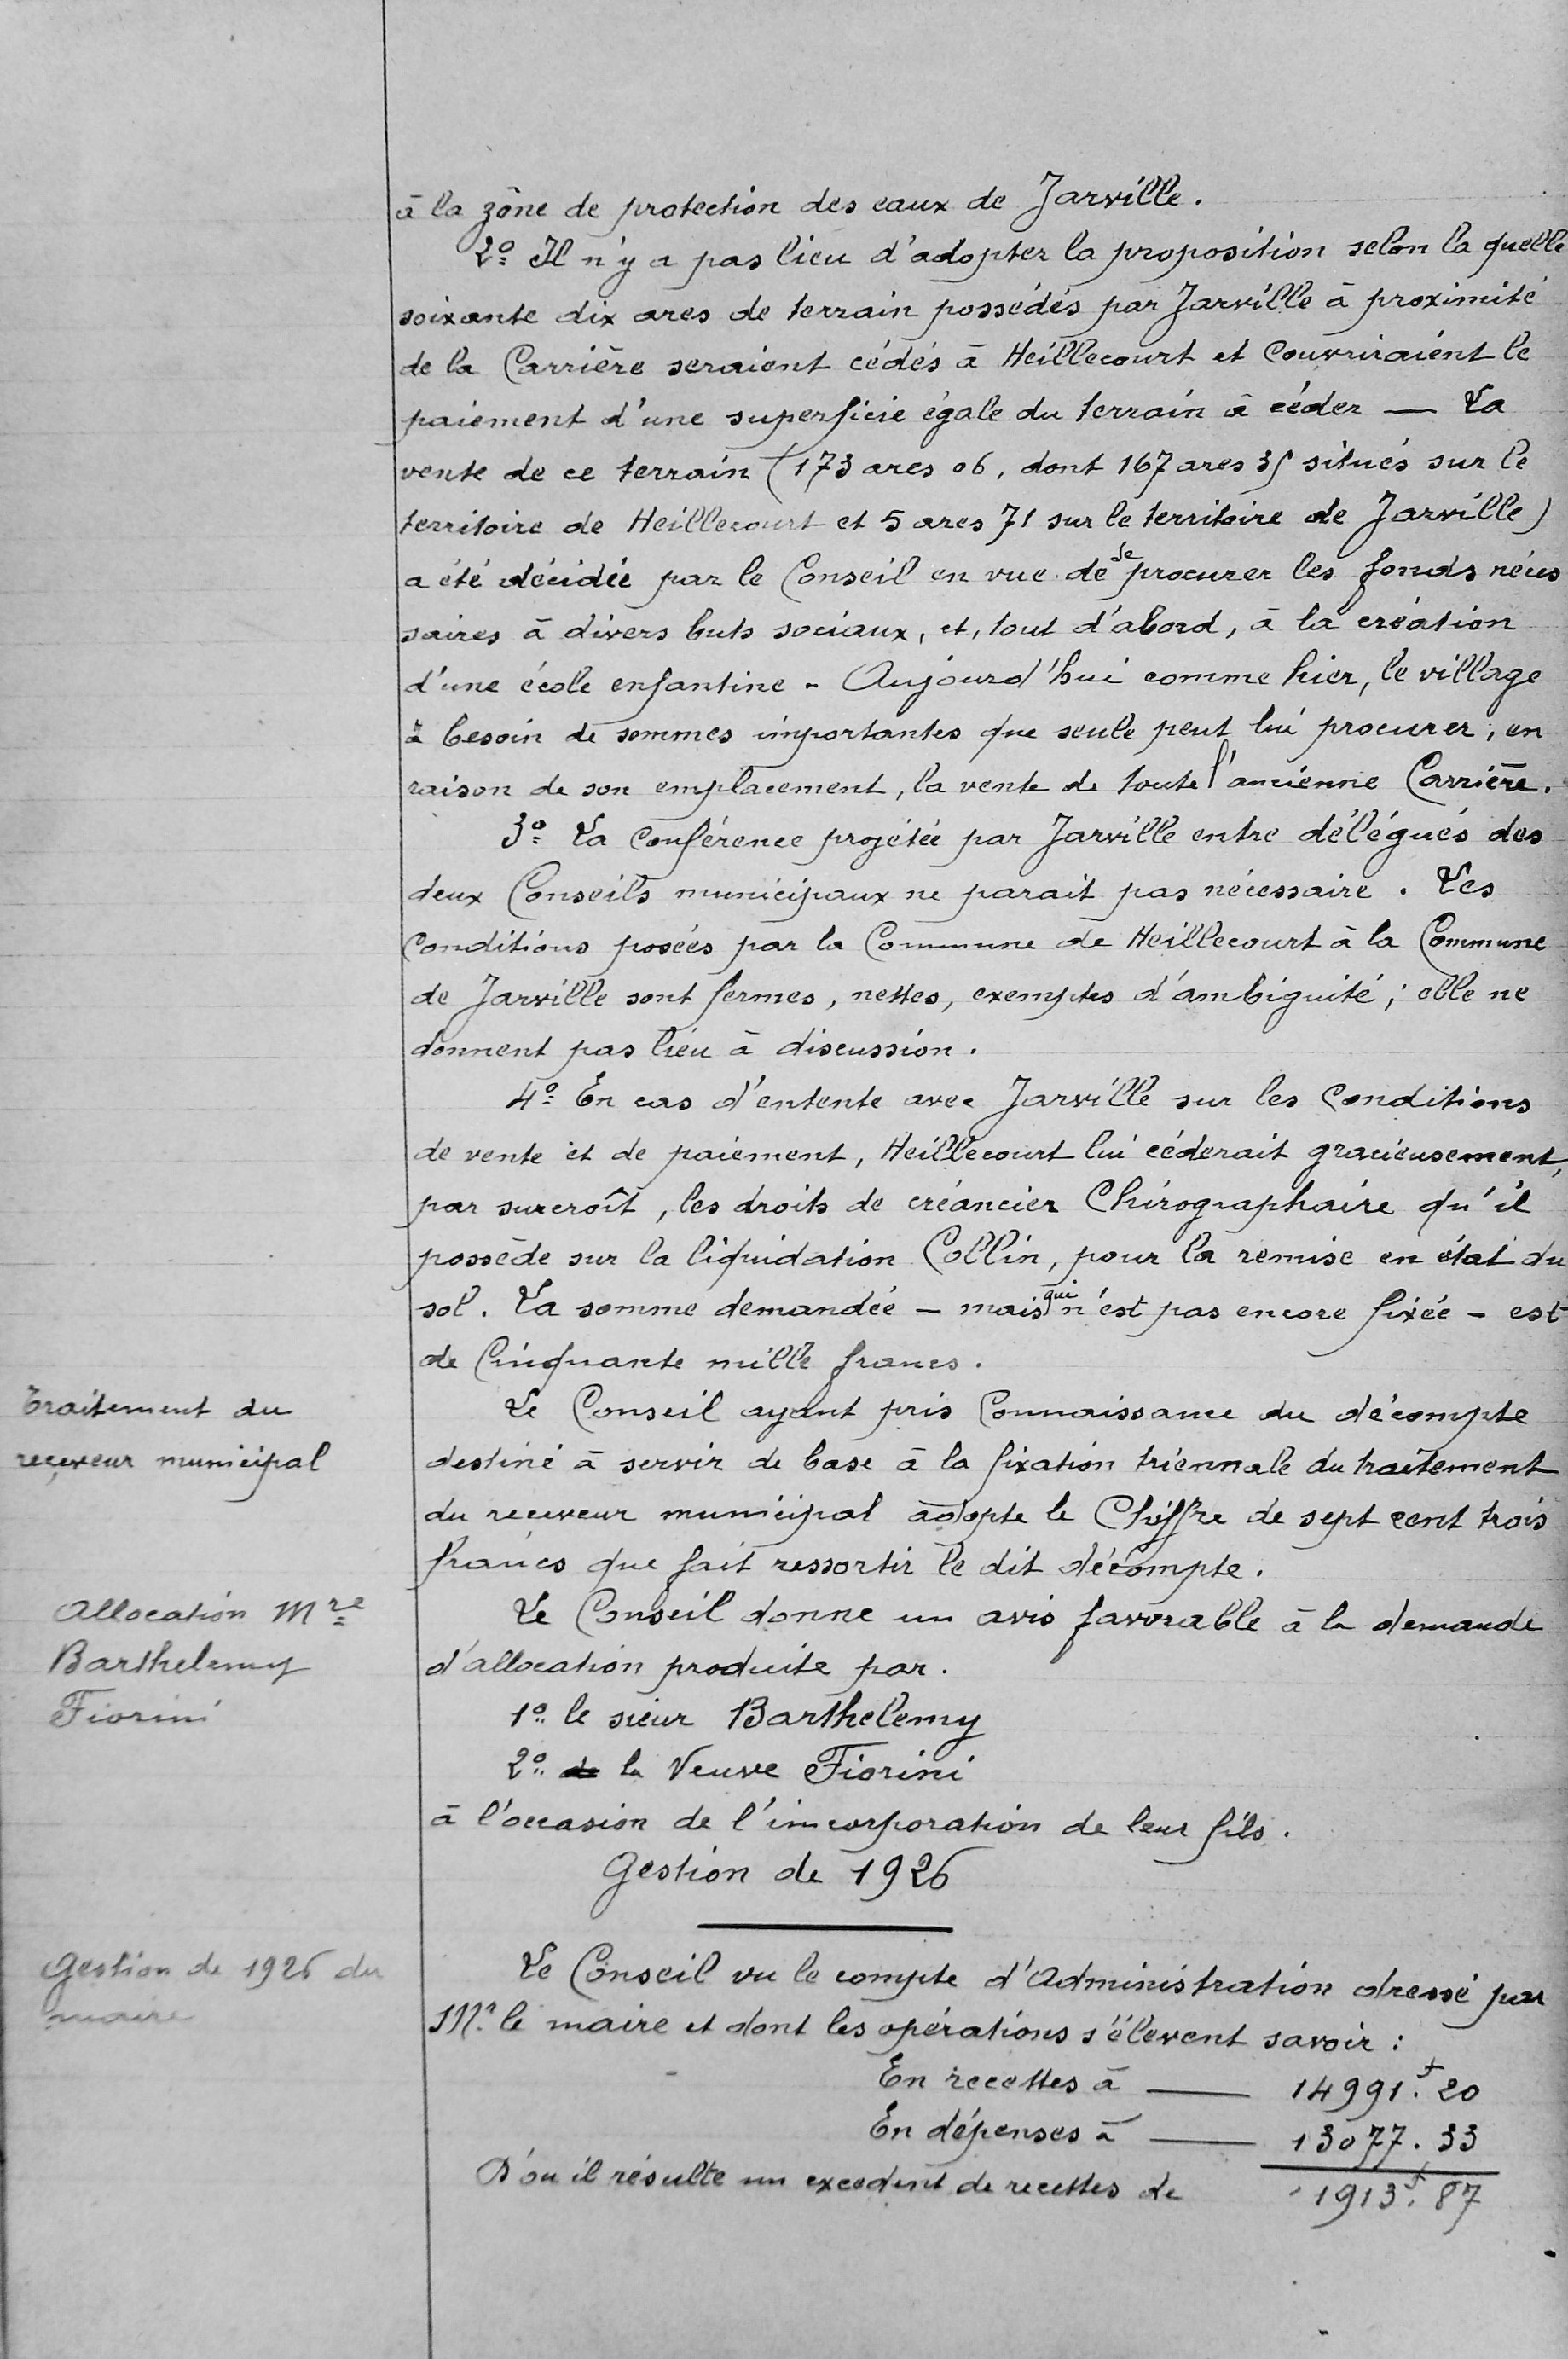 à la zône de protection des eaux de Jarville.
2º Il n'y a pas lieu d'adopter la proposition selon la quelle
soixante dix ares de terrain possédés par Jarville à proximité
de la Carrière seraient cédés à Heillecourt et Couvriraient le
paiement d'une superficie égale du terrain à céder — La
vente de ce terrain (173 ares 06, dont 167 ares 35 situés sur le
territoire de Heillecourt et 5 ares 71 sur le territoire de Jarville)
a été décidée par le Conseil en vue de se procurer les fonds néces
saires à divers buts sociaux, et, tout d'abord, à la création
d'une école enfantine - Aujourd'hui comme hier, le village
a besoin de sommes importantes que seule peut lui procurer, en
raison de son emplacement, la vente de toute l'ancienne Carrière.
3º La Conférence projétée par Jarville entre délégués des
deux Conseils municipaux ne parait pas nécessaire. Les
Conditions posées par la Commune de Heillecourt à la Commune
de Jarville sont fermes, nettes, exemptes d'ambiguité; elle ne
donnent pas lieu à discussion.
4º En cas d'entente avec Jarville sur les Conditions
de vente et de paiement, Heillecourt lui céderait gracieusement,
par surcroît, les droits de créancier Chirographaire qu'il
possède sur la liquidation Collin, pour la remise en état du
sol. La somme demandée - mais qui n'est pas encore fixée - est
de Cinquante mille francs.
Traitement du
receveur municipal
Le Conseil ayant pris Connaissance du décompte
destiné à servir de base à la fixation triennale du traitement
du receveur municipal adopte le Chiffre de sept cent trois
francs que fait ressortir le dit décompte.
Allocation Mre
Barthelemy
Fiorini
Le Conseil donne un avis favorable à la demande
d'allocation produite par.
1º le sieur Barthelemy
2º la Veuve Fiorini
à l'occasion de l'incorporation de leur fils.
Gestion de 1926
Gestion de 1926 du
maire
Le Conseil vu le compte d'Administration dressé par
Mr. le maire et dont les opérations s'élevent savoir :
En recettes à — 14991.f 20
En dépenses à — 13077. 33
D'ou il résulte un excedent de recettes de 1913.f 87